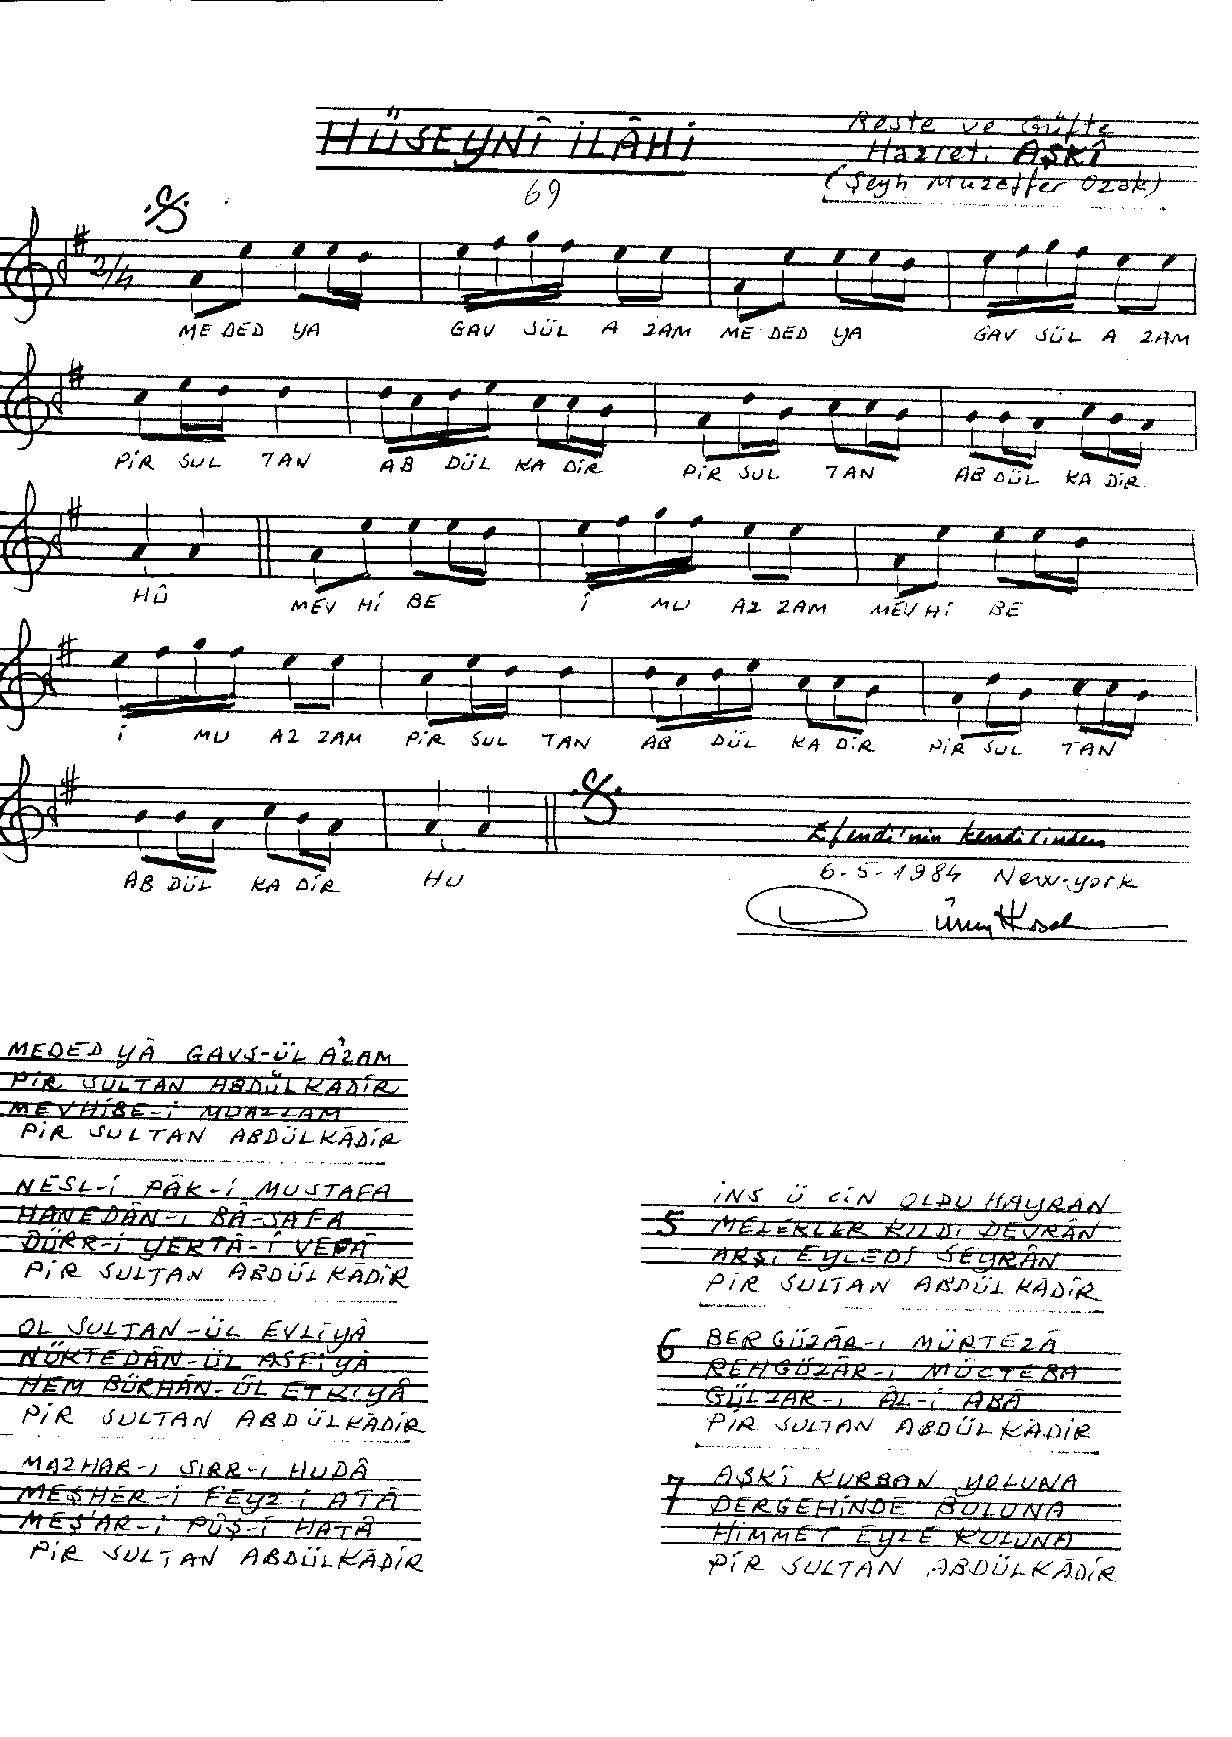 HÜSEYNÎ İLÂHİ
Beste ve Güfte
Hazreti AŞKÎ
(Şeyh Muzaffer Ozak)
69
2/4
MEDED YA GAV SÜL A ZAM MEDED YA GAV SÜL A ZAM
PİR SUL TAN AB DÜL KA DİR PİR SUL TAN AB DÜL KA DİR
HÛ MEV Hİ BE İ MU AZ ZAM MEV Hİ BE
İ MU AZ ZAM PİR SUL TAN AB DÜL KA DİR PİR SUL TAN
AB DÜL KA DİR HU
Efendi'nin kendisinden
6-5-1984 New-york
MEDED YÂ GAVS-ÜL A'ZAM
PİR SULTAN ABDÜLKADİR
MEVHİBE-İ MUAZZAM
PİR SULTAN ABDÜLKÂDİR
NESL-İ PÂK-İ MUSTAFA
HANEDÂN-I BÂ-SAFA
DÜRR-İ YEKTÂ-İ VEFÂ
PİR SULTAN ABDÜLKÂDİR
OL SULTAN-ÜL EVLİYÂ
NÜKTEDÂN-ÜL ASFİYÂ
HEM BÜRHÂN-ÜL ETKİYÂ
PİR SULTAN ABDÜLKÂDİR
MAZHAR-I SIRR-I HUDÂ
MEŞHER-İ FEYZ-İ ATÂ
MEŞ'AR-İ PÛŞ-İ HATÂ
PİR SULTAN ABDÜLKÂDİR
5 İNS Ü CİN OLDU HAYRÂN
MELEKLER KILDI DEVRÂN
ARŞI EYLEDİ SEYRÂN
PİR SULTAN ABDÜLKÂDİR
6 BERGÜZÂR-I MÜRTEZÂ
REHGÜZÂR-I MÜCTEBA
GÜLZAR-I ÂL-İ ABÂ
PİR SULTAN ABDÜLKÂDİR
7 AŞKÎ KURBAN YOLUNA
DERGEHİNDE BULUNA
HİMMET EYLE KULUNA
PİR SULTAN ABDÜLKÂDİR